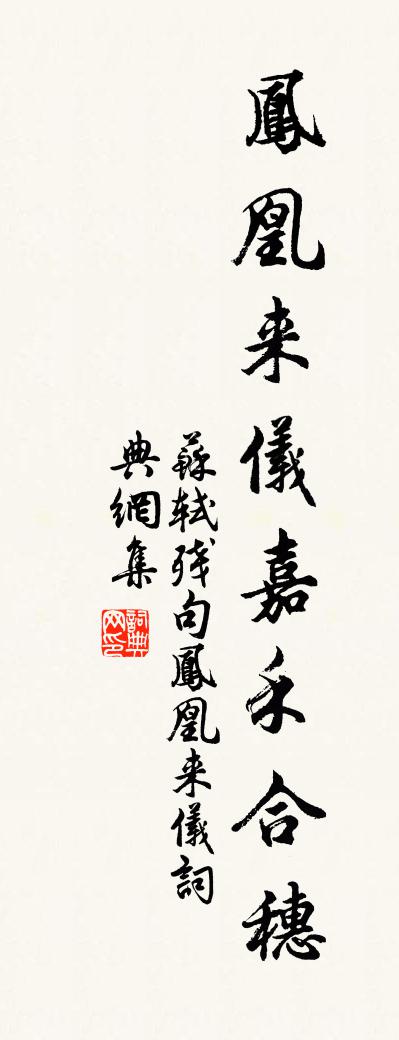 鳳凰来儀嘉禾合穗
蘇軾残句鳳凰来儀詞
典網集
詞典
网印